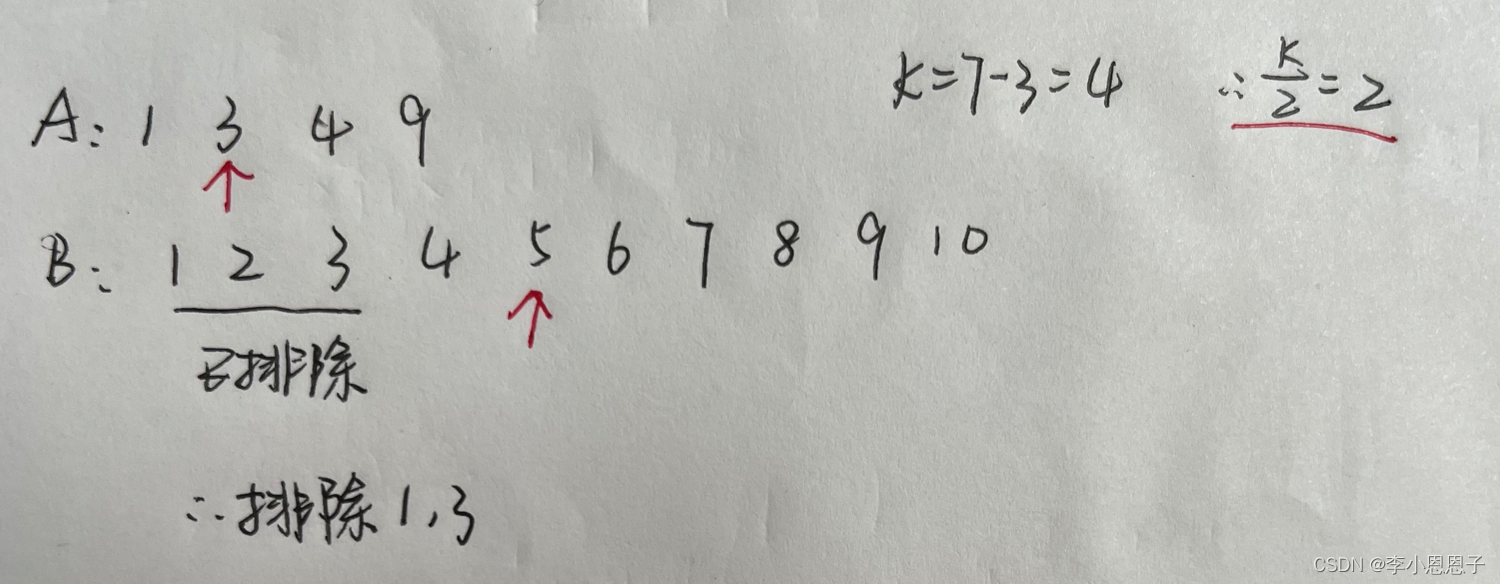 k=7-3=4 ∴ k/2 = 2
A: 1 3 4 9
B: 1 2 3 4 5 6 7 8 9 10
已排除
∴排除1,3
CSDN @李小恩恩子